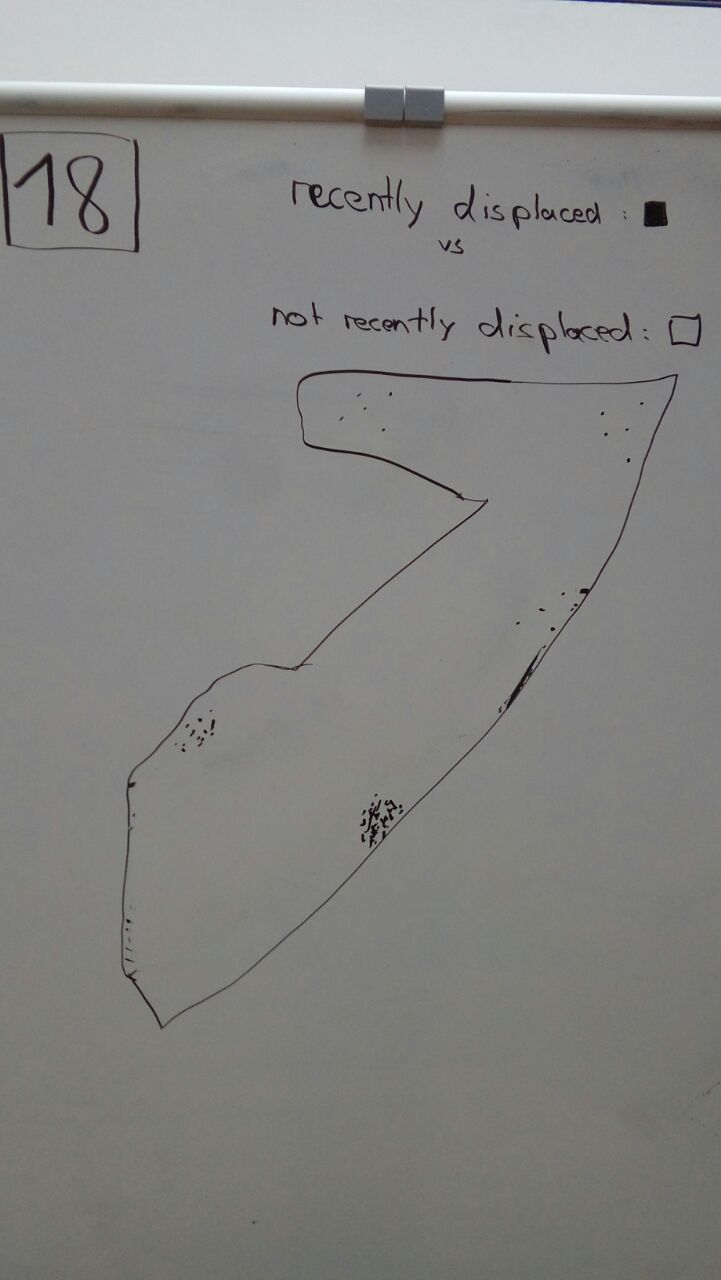 18
recently displaced : ■
vs
not recently displaced: □